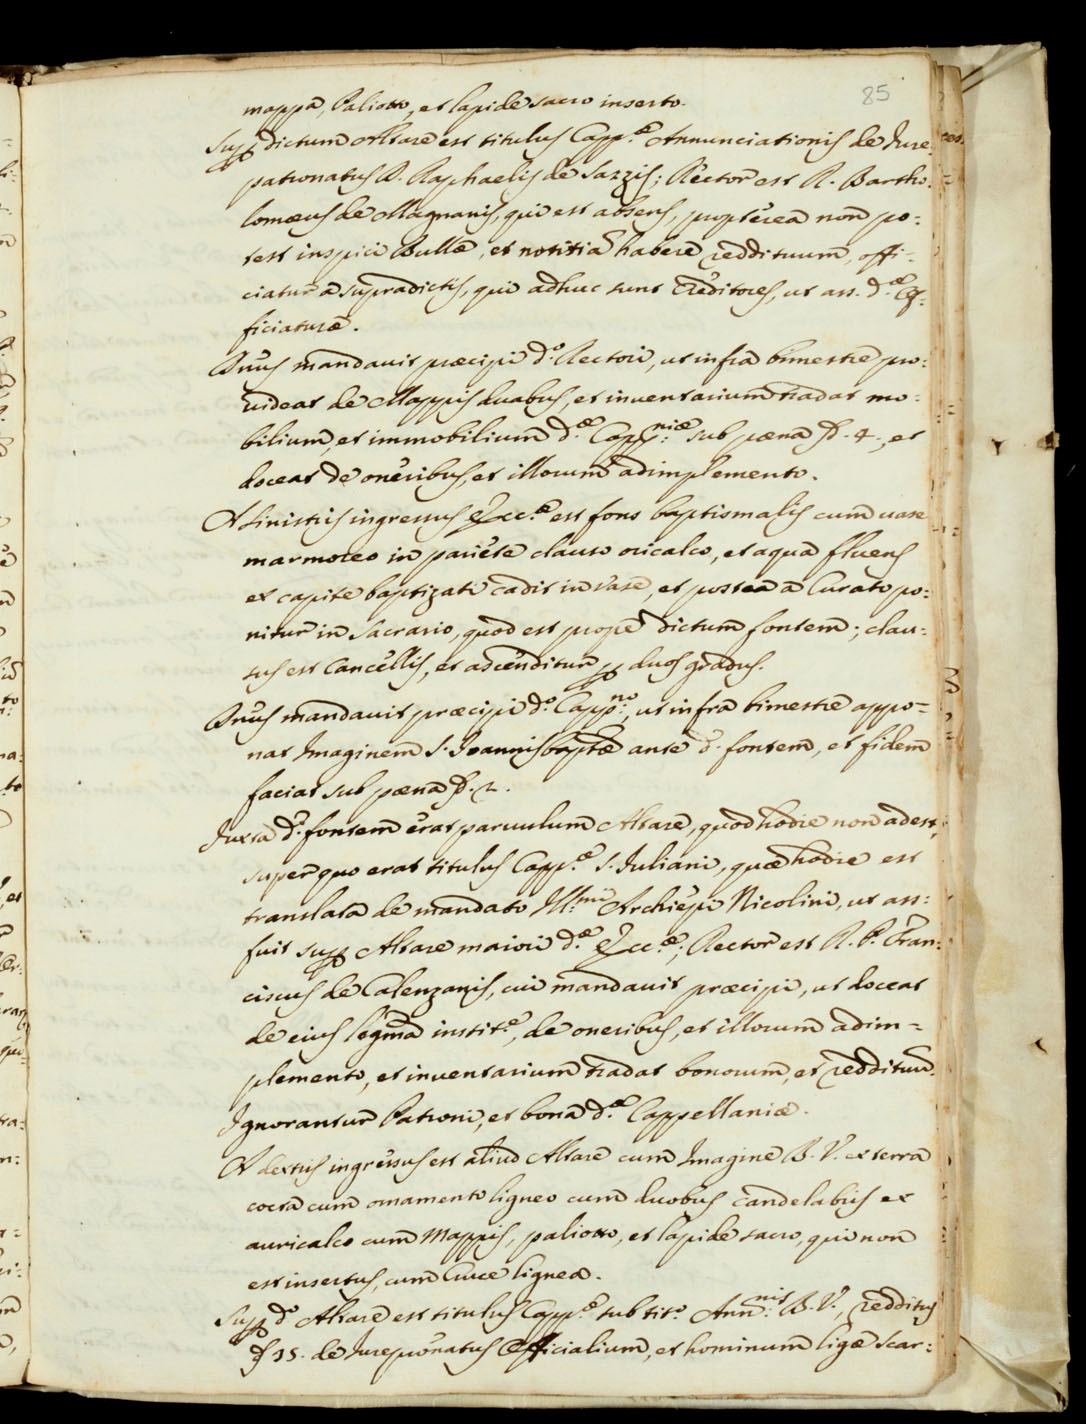 85
mappa, Paliotto, et lapide sacro inserto.
Sup. dictum Altare est titulus Capp.æ Annunciationis de Jure
patronatus D. Raphaelis de Sazzis; Rector est R. Bartho:
lomæus de Magnanis, qui est absens, propterea non po:
test inspici Bulla, et notitia haberi reddituum, offi:
ciatur a supradictis, qui adhuc sunt Creditores, ut ass. d.æ Of:
ficiaturæ.
Dnus mandavit præcipi d.o Rectori, ut infra bimestre pro:
uideat de Mappis duabus, et inventarium tradat mo:
bilium, et immobilium d.æ Capp.niæ sub pæna 4., et
doceat de oneribus, et illorum adimplemento.
A sinistris ingressus Ecc.æ est fons baptismalis cum uase
marmoreo in pariete clauso oricalco, et aqua fluens
ex capite baptizati cadit in vase, et postea a Curato po:
nitur in Sacrario, quod est prope dictum fontem; clau:
sus est Cancellis, et ascenditur p duos gradus.
Dnus mandavit præcipi d.o Capp.no, ut infra bimestre appo=
nat Imaginem S. Joannis baptæ ante d. fontem, et fidem
faciat sub pæna 2.
Juxta d. fontem erat paruulum Altare, quod hodie non adest,
super quo erat titulus Capp.æ S. Juliani, quæ hodie est
translata de mandato Ill.mi Archiepi Nicolini, ut ass:
fuit sup Altare maiori d.æ Ecc.æ; Rector est R. P. Fran:
ciscus de Calenzanis, cui mandavit præcipi, ut doceat
de eius legma instit.e, de oneribus, et illorum adim=
plemento, et inventarium tradat bonorum, et reddituu.
Ignorantur Patroni, et bona d.æ Cappellaniæ.
A dextris ingressus est aliud Altare cum Imagine B. V. ex terra
cocta cum ornamento ligneo cum duobus candelabris ex
auricalco cum Mappis, paliotto, et lapide sacro, qui non
est insertus, cum Cruce lignea.
Sup d.o Altare est titulus Capp.æ sub tit.o Ann.nis B. V., redditus
15. de Jurepronatus Officialium, et hominum ligæ Scar: